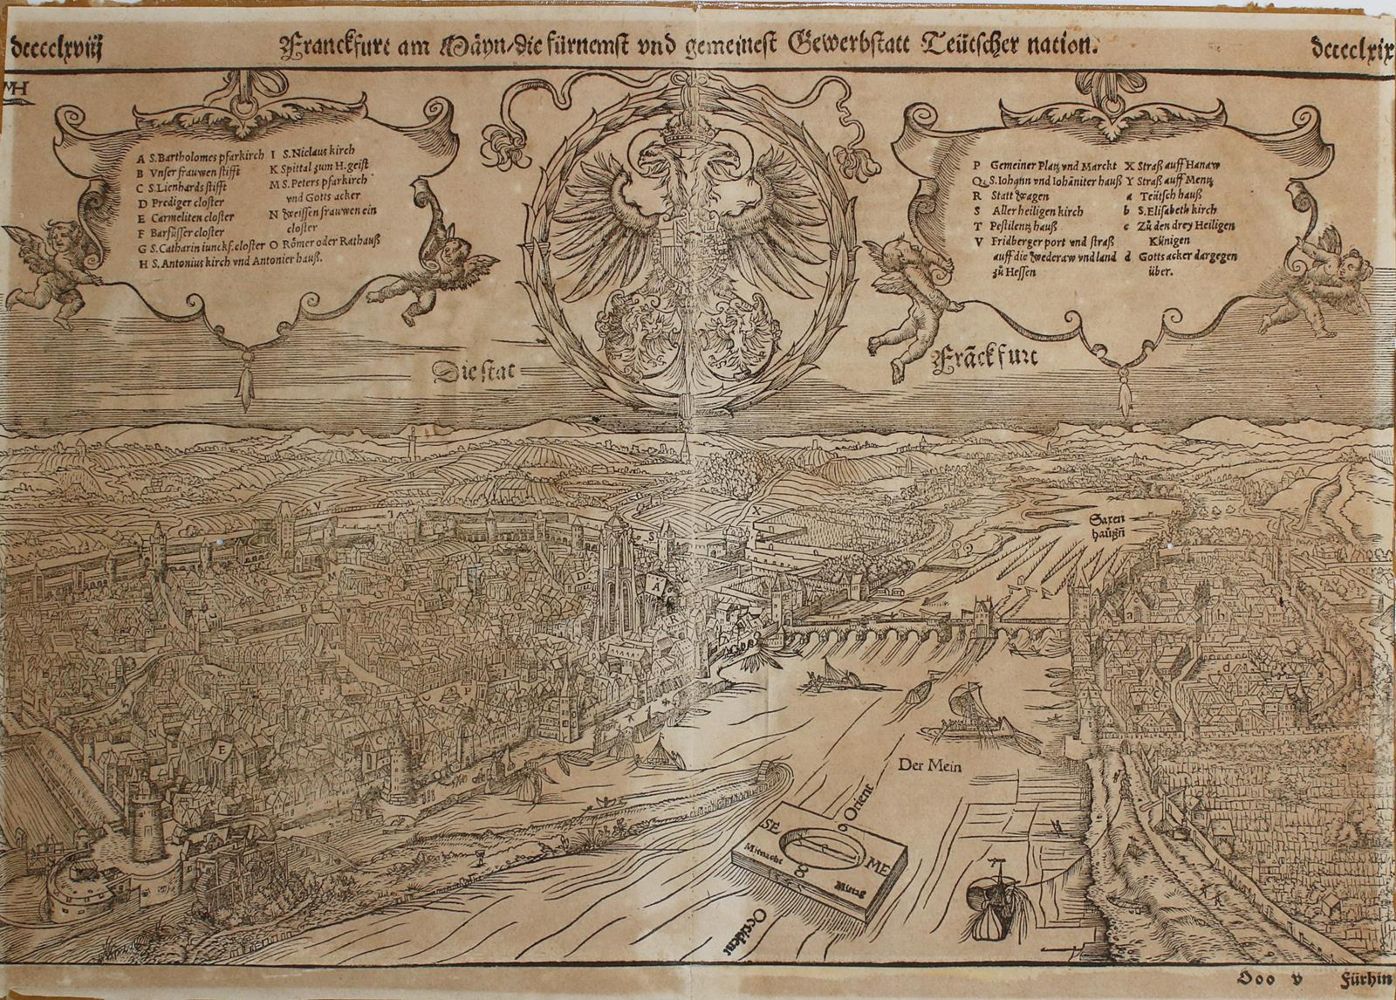 dcccclxviij
Franckfurt am Mäyn/die fürnemst vnd gemeinest Gewerbstatt Teütscher nation.
dcccclxix
A S. Bartholomes pfarkirch
B Vnser frauwen stifft
C S. Lienhards stifft
D Prediger closter
E Carmeliten closter
F Barfüsser closter
G S. Catharin iunckf. closter
H S. Antonius kirch vnd Antonier hauß.
I S. Niclaus kirch
K Spittal zum H. geist
M S. Peters pfarkirch
vnd Gotts acker
N Weissen frauwen ein
closter
O Römer oder Rathauß
P Gemeiner Platz vnd Marckt
Q S. Iohann vnd Iohāniter hauß
R Statt wagen
S Aller heiligen kirch
T Pestilentz hauß
V Fridberger port vnd straß
auff die Wederaw vnd land
zů Hessen
X Straß auff Hanaw
Y Straß auff Mentz
a Teütsch hauß
b S. Elisabeth kirch
c Zů den drey Heiligen
Künigen
d Gotts acker dargegen
über.
Die stat
Frāckfurt
Saxen
haußn
Der Mein
Orient
SE
ME
Mitnacht
Mittag
Occident
Ooo v
Fürhin